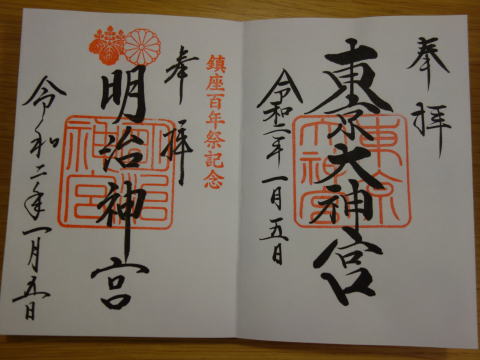 奉拝
東京大神宮
東京大神宮
令和二年一月五日
鎮座百年祭記念
奉拝
明治神宮
明治神宮
令和二年一月五日